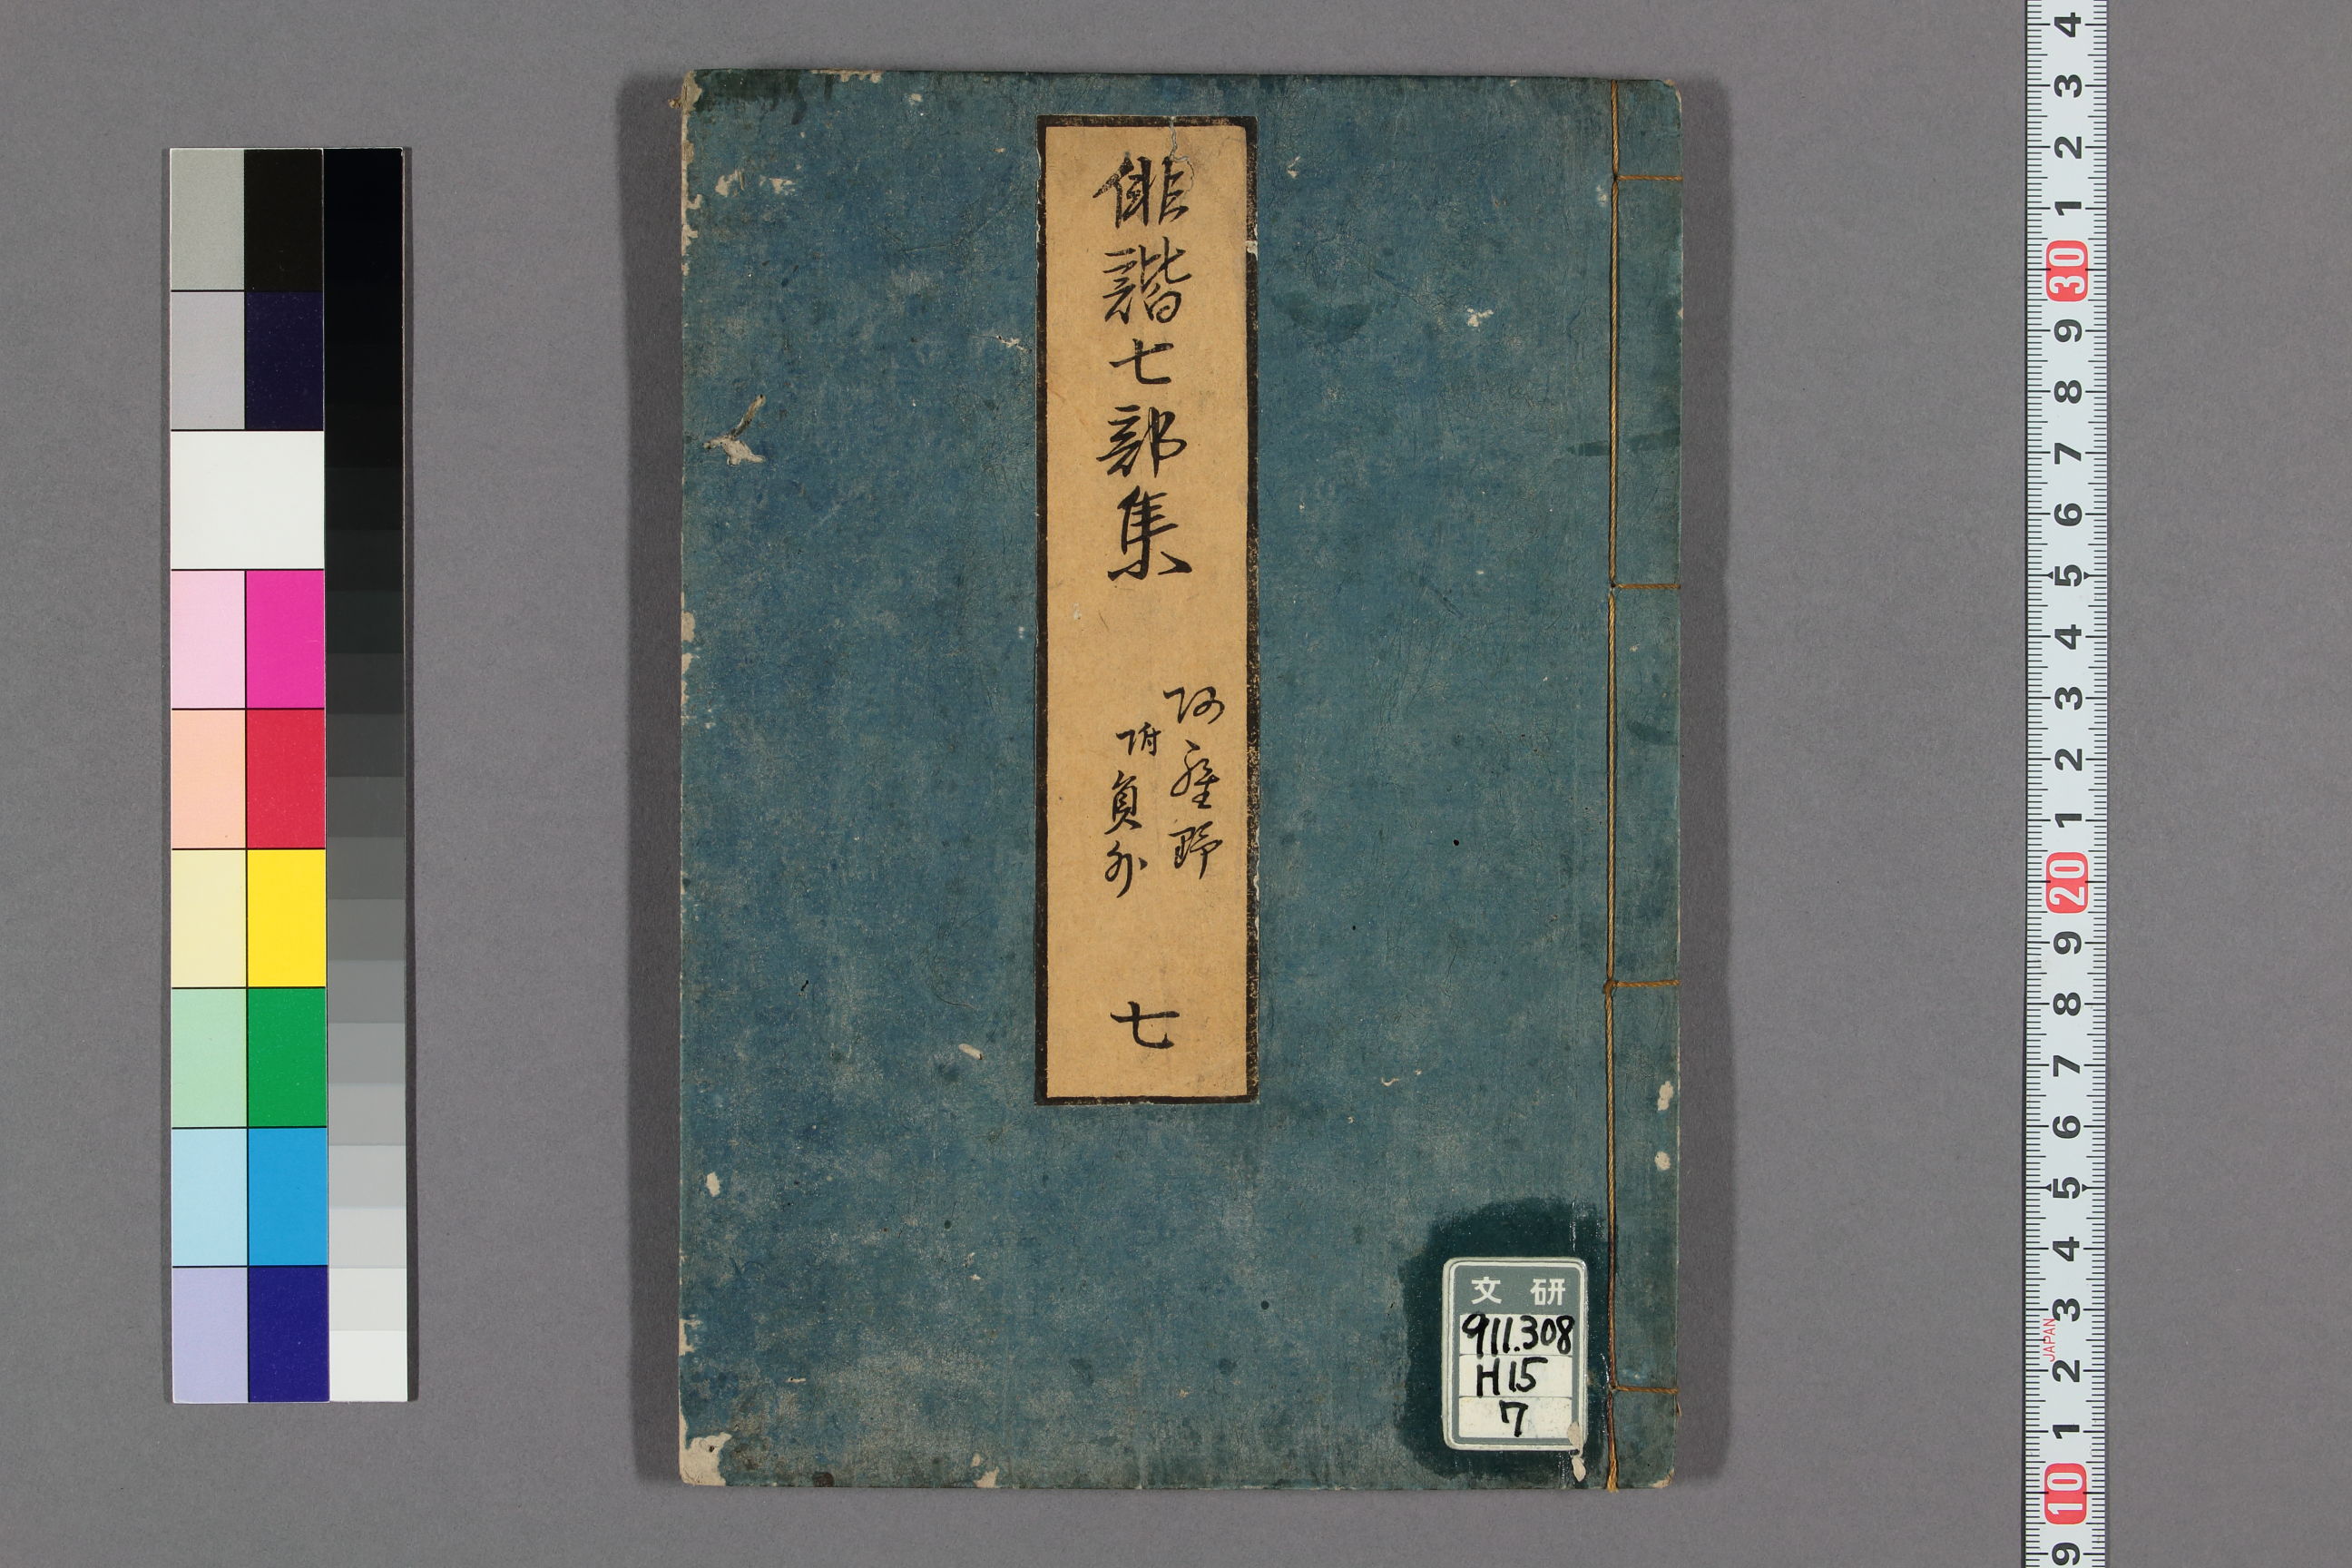 俳諧七部集
阿羅野
附員外
七
文研
911.308
H15
7
4
3
2
1
30
9
8
7
6
5
4
3
2
1
20
9
8
7
6
5
4
3
JAPAN
2
1
10
9